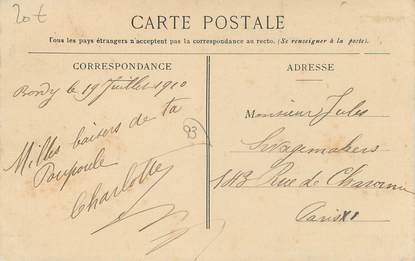 20 €
CARTE POSTALE
Tous les pays étrangers n'acceptent pas la correspondance au recto. (Se renseigner à la poste).
CORRESPONDANCE
Bondy le 19 Juillet 1910
Milles baisers de ta
Poupoule
Charlotte
93
ADRESSE
Monsieur Jules
Swagemakers
143 Rue de Charonne
Paris XI